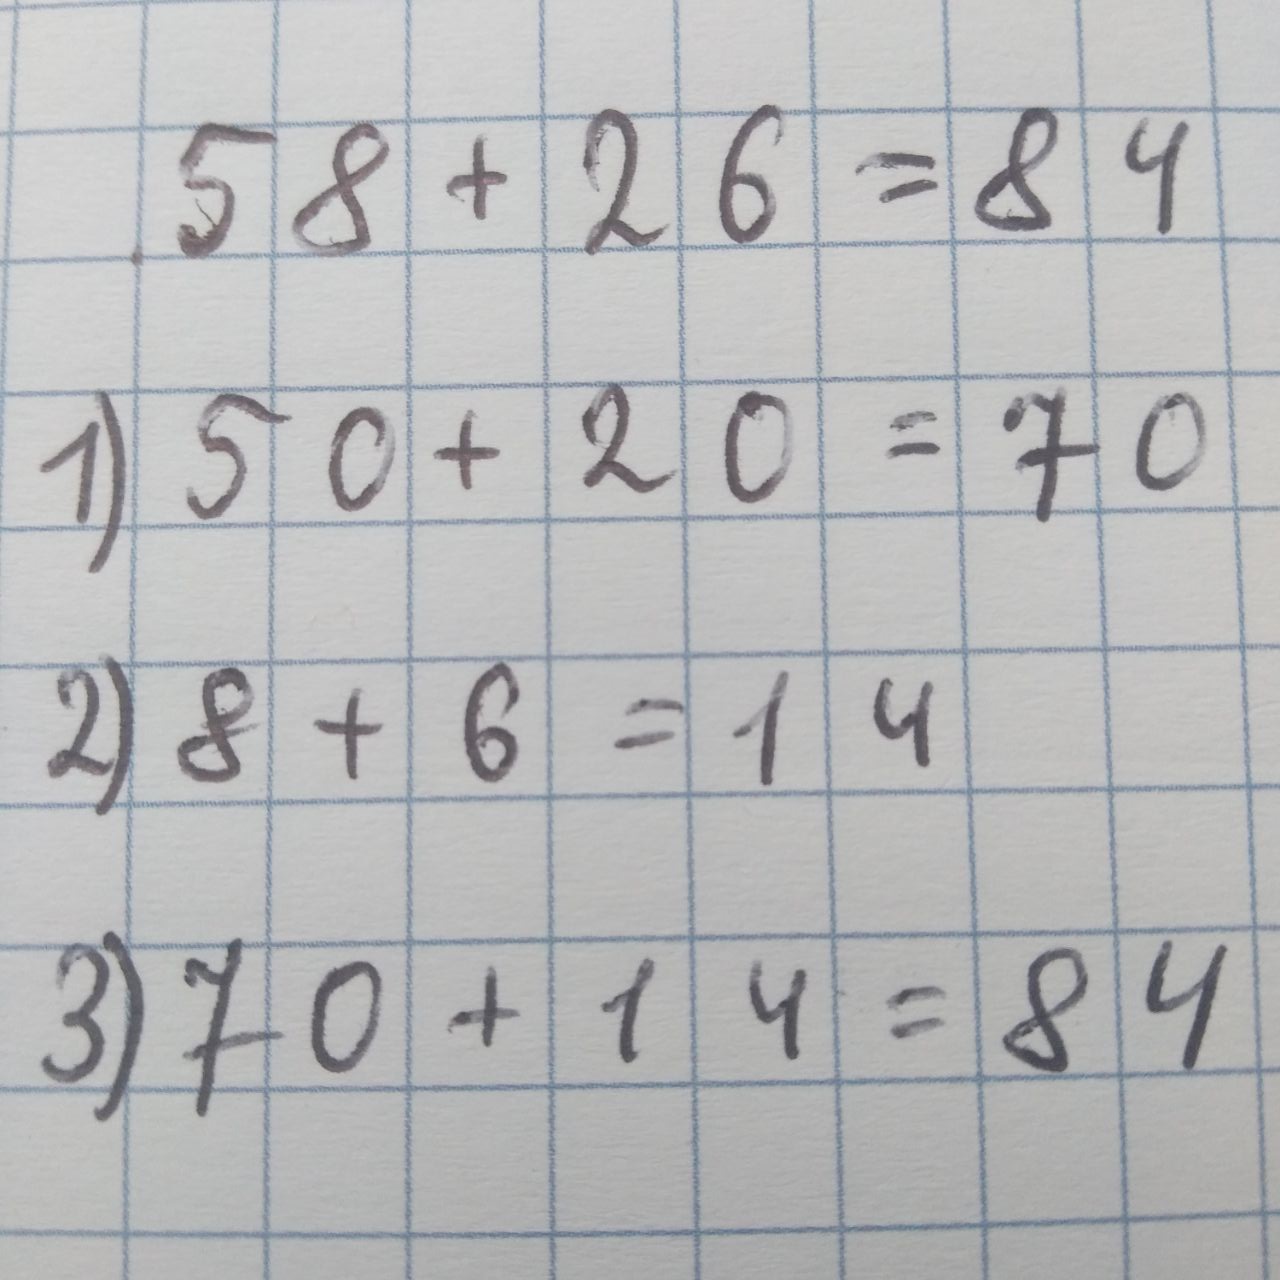 58+26=84
1) 50+20=70
2) 8+6=14
3) 70+14=84